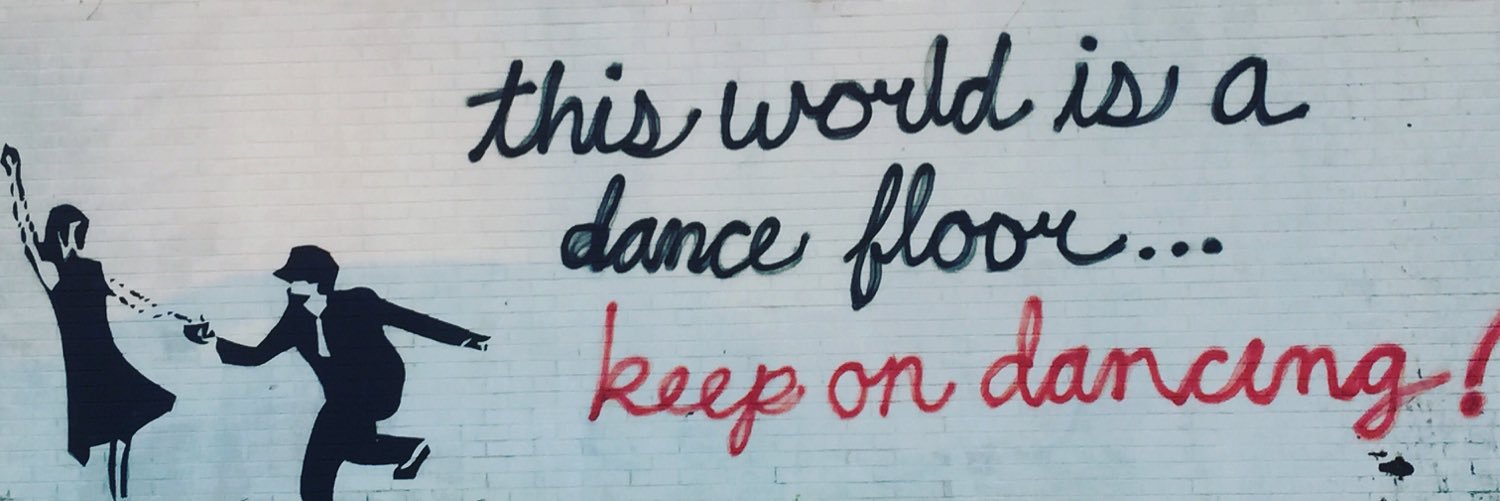 this world is a
dance floor...
keep on dancing!